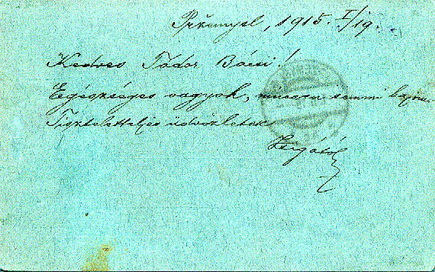 Przemysl, 1915. I/19.
Kedves Tódor Bácsi!
Egészséges vagyok, nincsen semmi bajom.
Tiszteletteljes üdvözletek